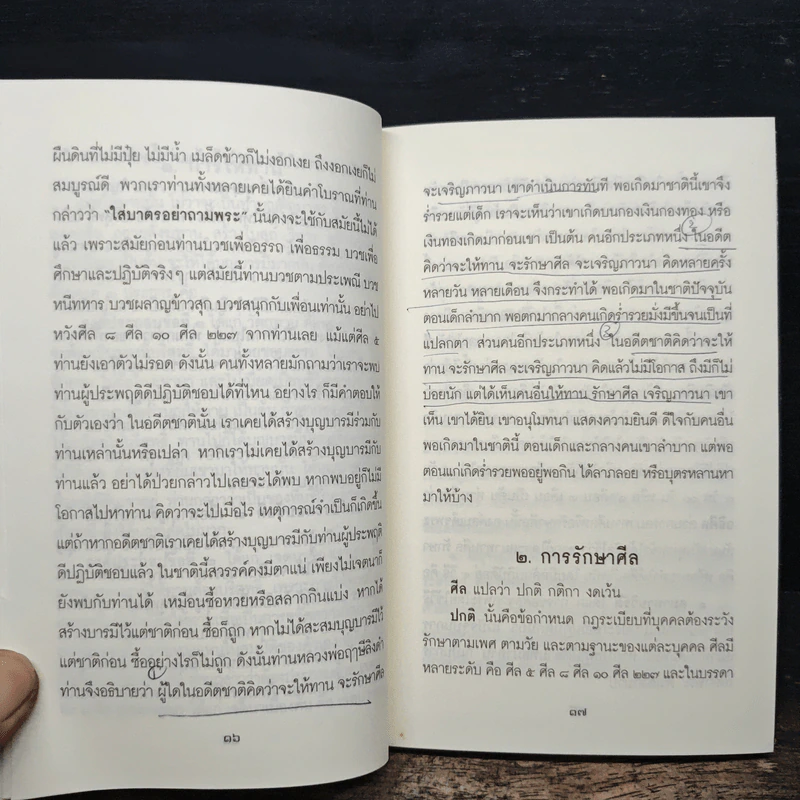 ผืนดินที่ไม่มีปุ๋ย ไม่มีน้ำ เมล็ดข้าวก็ไม่งอกเงย ถึงงอกเงยก็ไม่
สมบูรณ์ดี พวกเราท่านทั้งหลายเคยได้ยินคำโบราณที่ท่าน
กล่าวว่า "ใส่บาตรอย่าถามพระ" นั้นคงจะใช้กับสมัยนี้ไม่ได้
แล้ว เพราะสมัยก่อนท่านบวชเพื่ออรรถ เพื่อธรรม บวชเพื่อ
ศึกษาและปฏิบัติจริงๆ แต่สมัยนี้ท่านบวชตามประเพณี บวช
หนีทหาร บวชผลาญข้าวสุก บวชสนุกกับเพื่อนเท่านั้น อย่าไป
หวังศีล ๘ ศีล ๑๐ ศีล ๒๒๗ จากท่านเลย แม้แต่ศีล ๕
ท่านยังเอาตัวไม่รอด ดังนั้น คนทั้งหลายมักถามว่าเราจะพบ
ท่านผู้ประพฤติดีปฏิบัติชอบได้ที่ไหน อย่างไร ก็มีคำตอบให้
กับตัวเองว่า ในอดีตชาตินั้น เราเคยได้สร้างบุญบารมีร่วมกับ
ท่านเหล่านั้นหรือเปล่า หากเราไม่เคยได้สร้างบุญบารมีกับ
ท่านแล้ว อย่าได้ป่วยกล่าวไปเลยจะได้พบ หากพบอยู่ก็ไม่มี
โอกาสไปหาท่าน คิดว่าจะไปเมื่อไร เหตุการณ์จำเป็นก็เกิดขึ้น
แต่ถ้าหากอดีตชาติเราเคยได้สร้างบุญบารมีกับท่านผู้ประพฤติ
ดีปฏิบัติชอบแล้ว ในชาตินี้สวรรค์คงมีตาแน่ เพียงไม่เจตนาก็
ยังพบกับท่านได้ เหมือนซื้อหวยหรือสลากกินแบ่ง หากได้
สร้างบารมีไว้แต่ชาติก่อน ซื้อก็ถูก หากไม่ได้สะสมบุญบารมีไว้
แต่ชาติก่อน ซื้ออย่างไรก็ไม่ถูก ดังนั้นท่านหลวงพ่อฤๅษีลิงดำ
ท่านจึงอธิบายว่า ผู้ใดในอดีตชาติคิดว่าจะให้ทาน จะรักษาศีล
๑๖
จะเจริญภาวนา เขาดำเนินการทันที พอเกิดมาชาตินี้เขาจึง
ร่ำรวยแต่เด็ก เราจะเห็นว่าเขาเกิดบนกองเงินกองทอง หรือ
เงินทองเกิดมาก่อนเขา เป็นต้น คนอีกประเภทหนึ่ง ในอดีต
คิดว่าจะให้ทาน จะรักษาศีล จะเจริญภาวนา คิดหลายครั้ง
หลายวัน หลายเดือน จึงกระทำได้ พอเกิดมาในชาติปัจจุบัน
ตอนเด็กลำบาก พอตกมากลางคนเกิดร่ำรวยมั่งมีขึ้นจนเป็นที่
แปลกตา ส่วนคนอีกประเภทหนึ่ง ในอดีตชาติคิดว่าจะให้
ทาน จะรักษาศีล จะเจริญภาวนา คิดแล้วไม่มีโอกาส ถึงมีก็ไม่
บ่อยนัก แต่ได้เห็นคนอื่นให้ทาน รักษาศีล เจริญภาวนา เขา
เห็น เขาได้ยิน เขาอนุโมทนา แสดงความยินดี ดีใจกับคนอื่น
พอเกิดมาในชาตินี้ ตอนเด็กและกลางคนเขาลำบาก แต่พอ
ตอนแก่เกิดร่ำรวยพออยู่พอกิน ได้ลาภลอย หรือบุตรหลานหา
มาให้บ้าง
๒. การรักษาศีล
ศีล แปลว่า ปกติ กติกา งดเว้น
ปกติ นั้นคือข้อกำหนด กฎระเบียบที่บุคคลต้องระวัง
รักษาตามเพศ ตามวัย และตามฐานะของแต่ละบุคคล ศีลมี
หลายระดับ คือ ศีล ๕ ศีล ๘ ศีล ๑๐ ศีล ๒๒๗ และในบรรดา
๑๗